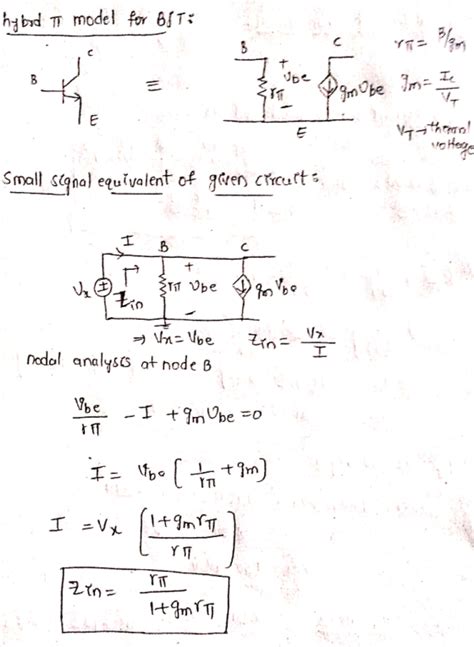 hybrid π model for BJT:
C
B
E
≡
B
C
+
Vbe
-
rπ
gmVbe
E
rπ = β/gm
gm = Ic/VT
VT → thermal voltage
Small signal equivalent of given circuit:
I
B
C
Vx
Zin
rπ
+
Vbe
-
gmVbe
⇒ Vx = Vbe
Zin = Vx/I
nodal analysis at node B
Vbe/rπ - I + gmVbe = 0
I = Vbe [1/rπ + gm]
I = Vx [(1+gmrπ)/rπ]
Zin = rπ/(1+gmrπ)